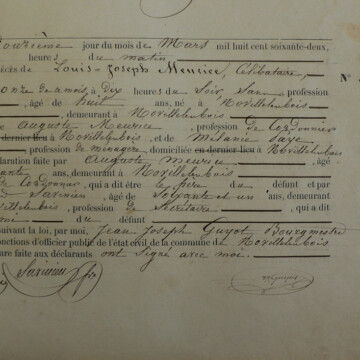 Douzième jour du mois de Mars mil huit cent soixante-deux,
heures du matin
décès de Louis-Joseph Meurice, Célibataire,
onze de ce mois, à dix heures du Soir, Sans profession
, âgé de huit ans, né à Novillelesbois
, demeurant à Novillelesbois
de Auguste Meurice, profession de Cordonnier
en dernier lieu à Novillelesbois et de Mélanie
profession de ménagère, domiciliée en dernier lieu à Novillelesbois
déclaration faite par Auguste Meurice, âgé
ans, demeurant à Novillelesbois
de Cordonnier, qui a dit être le père du défunt et par
, âgé de Soixante et un ans, demeurant
profession de Secrétaire, qui a dit
ami du défunt
suivant la loi, par moi, Jean Joseph Guyot Bourgmestre
fonctions d'officier public de l'état civil de la commune de Novillelesbois
faite aux déclarants ont Signé avec moi.